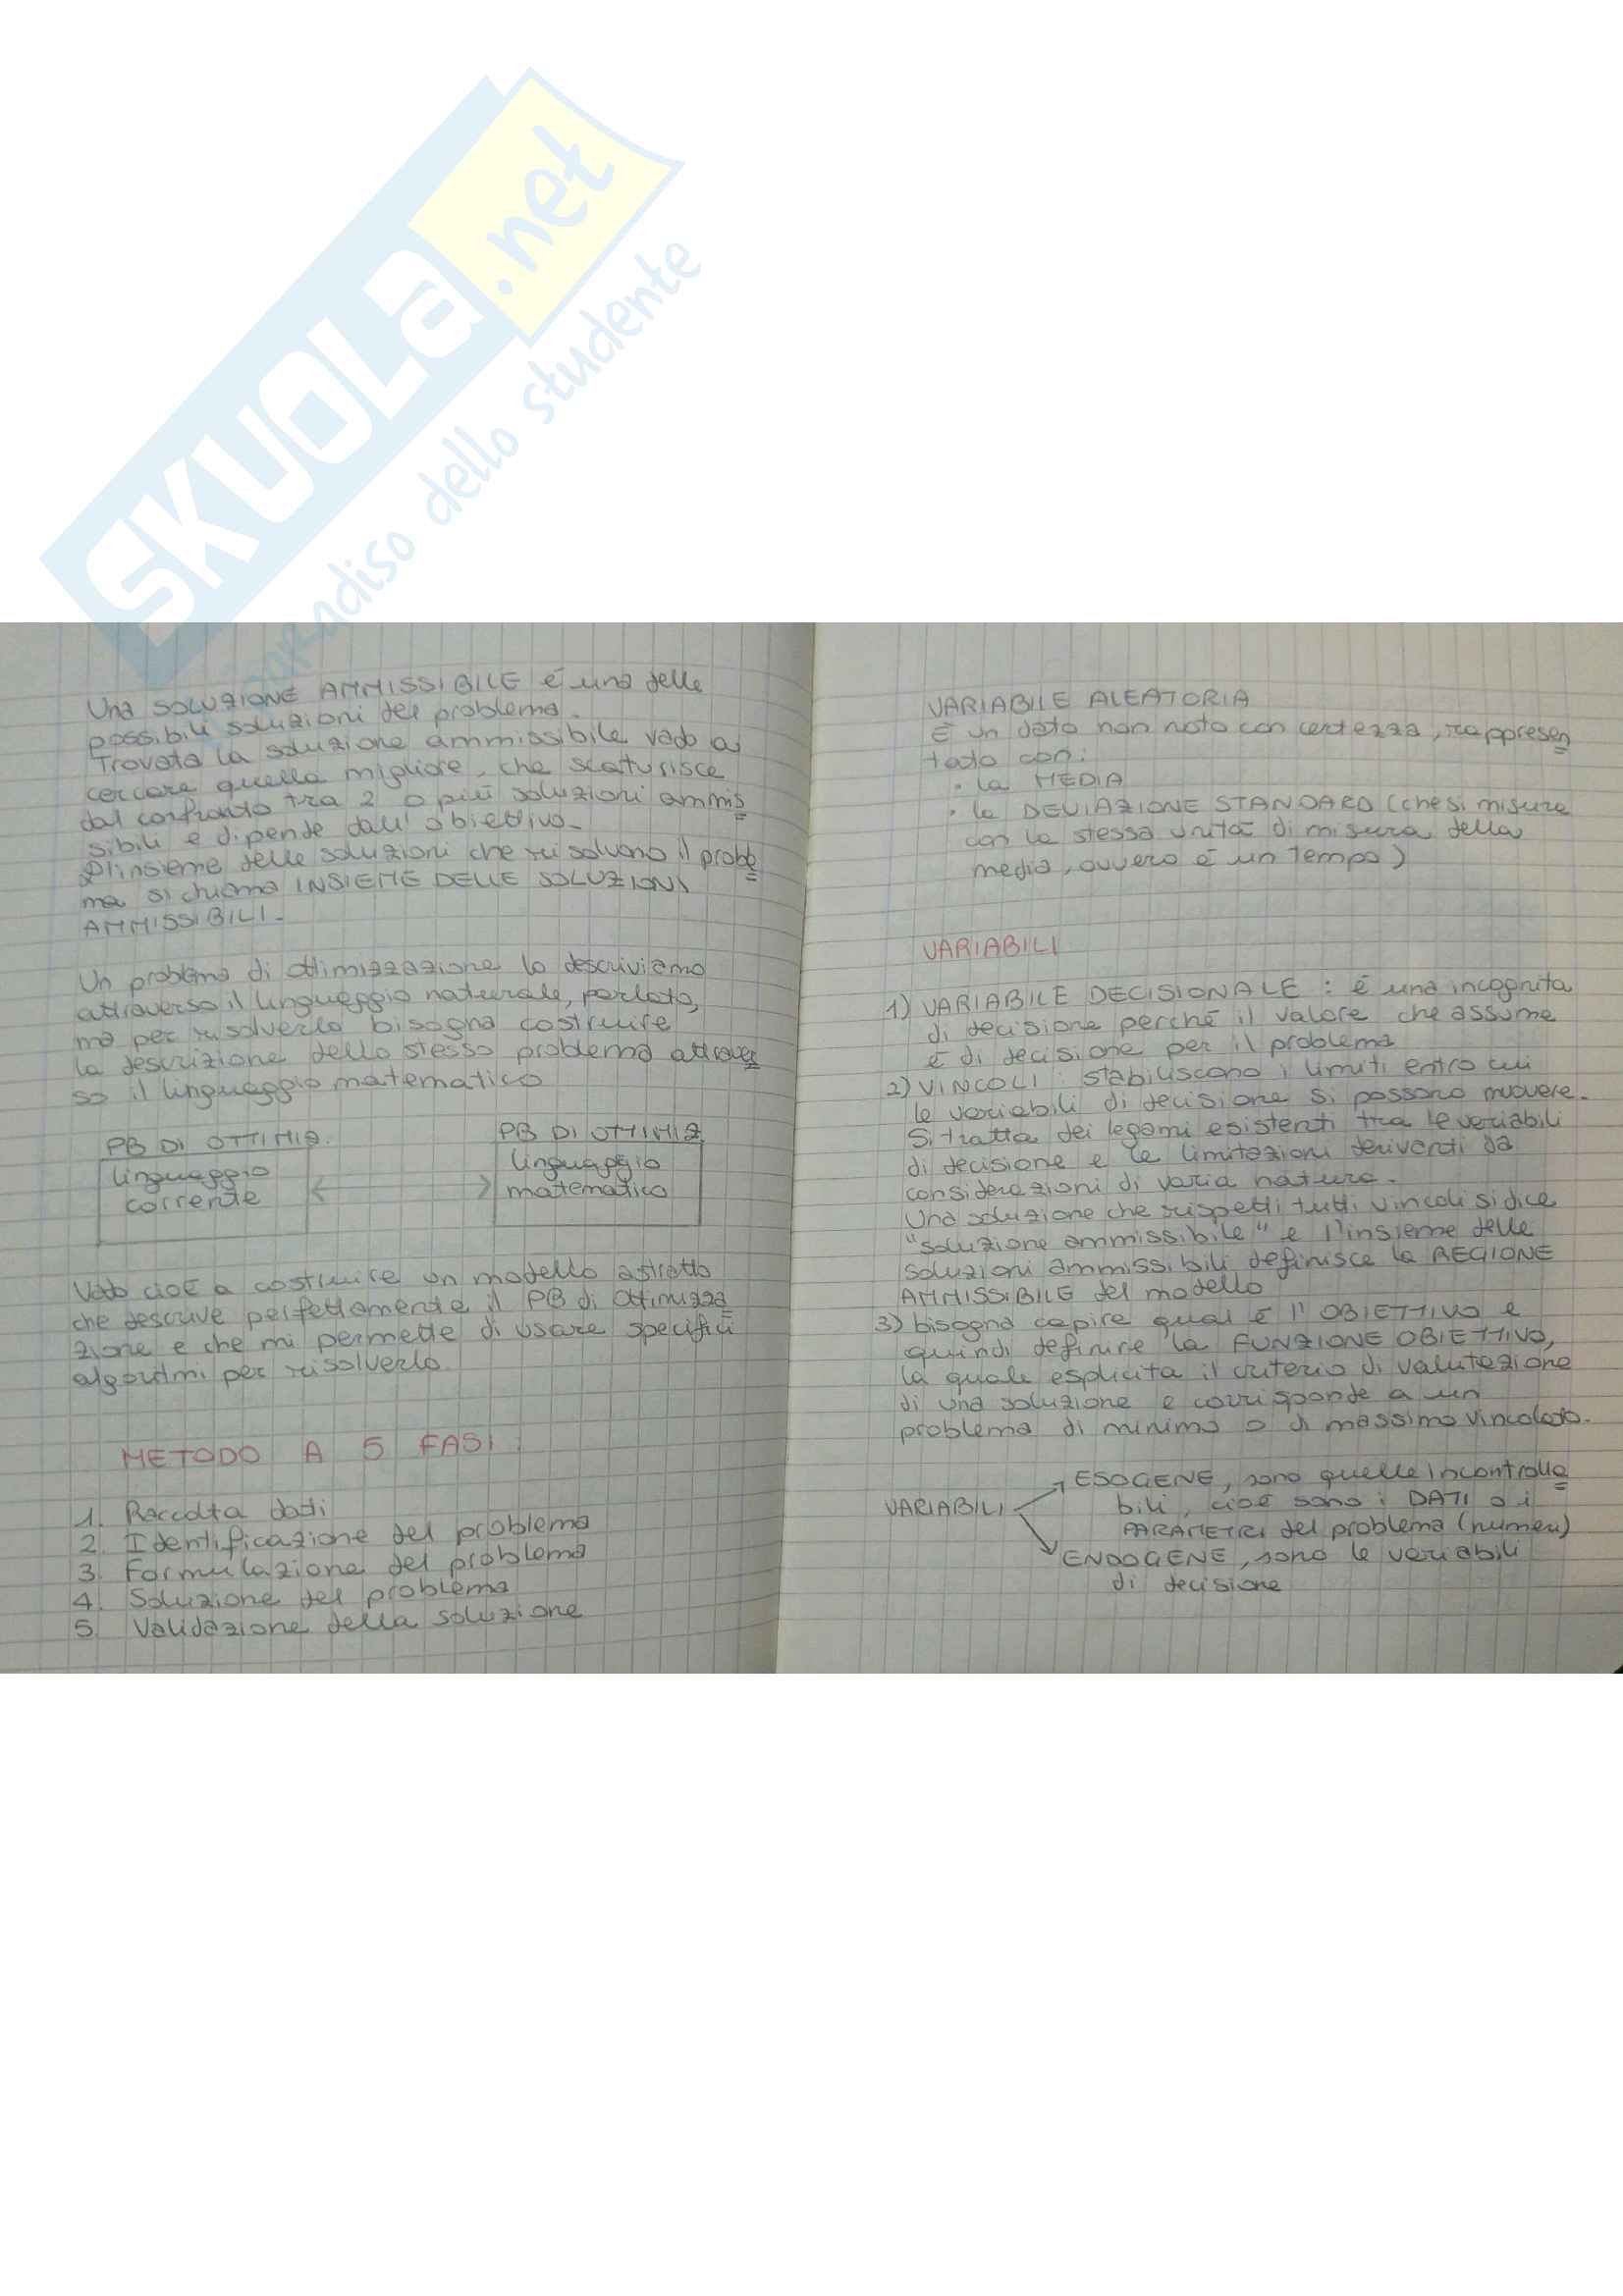 SKUOLA.net
paradiso dello studente
Una SOLUZIONE AMMISSIBILE è una delle
possibili soluzioni del problema.
Trovata la soluzione ammissibile vado a
cercare quella migliore, che scaturisce
dal confronto tra 2 o più soluzioni ammis
sibili e dipende dall'obiettivo.
L'insieme delle soluzioni che risolvono il proble
ma si chiama INSIEME DELLE SOLUZIONI
AMMISSIBILI.
Un problema di ottimizzazione lo descriviamo
attraverso il linguaggio naturale, parlato,
ma per risolverlo bisogna costruire
la descrizione dello stesso problema attraver
so il linguaggio matematico
PB DI OTTIMIZ.
linguaggio
corrente
PB DI OTTIMIZ
linguaggio
matematico
Vado cioè a costruire un modello astratto
che descrive perfettamente il PB di Ottimizza
zione e che mi permette di usare specifici
algoritmi per risolverlo.
METODO A 5 FASI:
1. Raccolta dati
2. Identificazione del problema
3. Formulazione del problema
4. Soluzione del problema
5. Validazione della soluzione
VARIABILE ALEATORIA
È un dato non noto con certezza, rappresen
tato con:
• la MEDIA
• la DEVIAZIONE STANDARD (che si misura
con la stessa unità di misura della
media, ovvero è un tempo)
VARIABILI
1) VARIABILE DECISIONALE: è una incognita
di decisione perché il valore che assume
è di decisione per il problema
2) VINCOLI: stabiliscono i limiti entro cui
le variabili di decisione si possono muovere.
Si tratta dei legami esistenti tra le variabili
di decisione e le limitazioni derivanti da
considerazioni di varia natura.
Una soluzione che rispetti tutti vincoli si dice
"soluzione ammissibile" e l'insieme delle
soluzioni ammissibili definisce la REGIONE
AMMISSIBILE del modello
3) bisogna capire qual è l'OBIETTIVO e
quindi definire la FUNZIONE OBIETTIVO,
la quale esplicita il criterio di valutazione
di una soluzione e corrisponde a un
problema di minimo o di massimo vincolato.
VARIABILI
ESOGENE, sono quelle incontrolla
bili, cioè sono i DATI o i
PARAMETRI del problema (numeri)
ENDOGENE, sono le variabili
di decisione